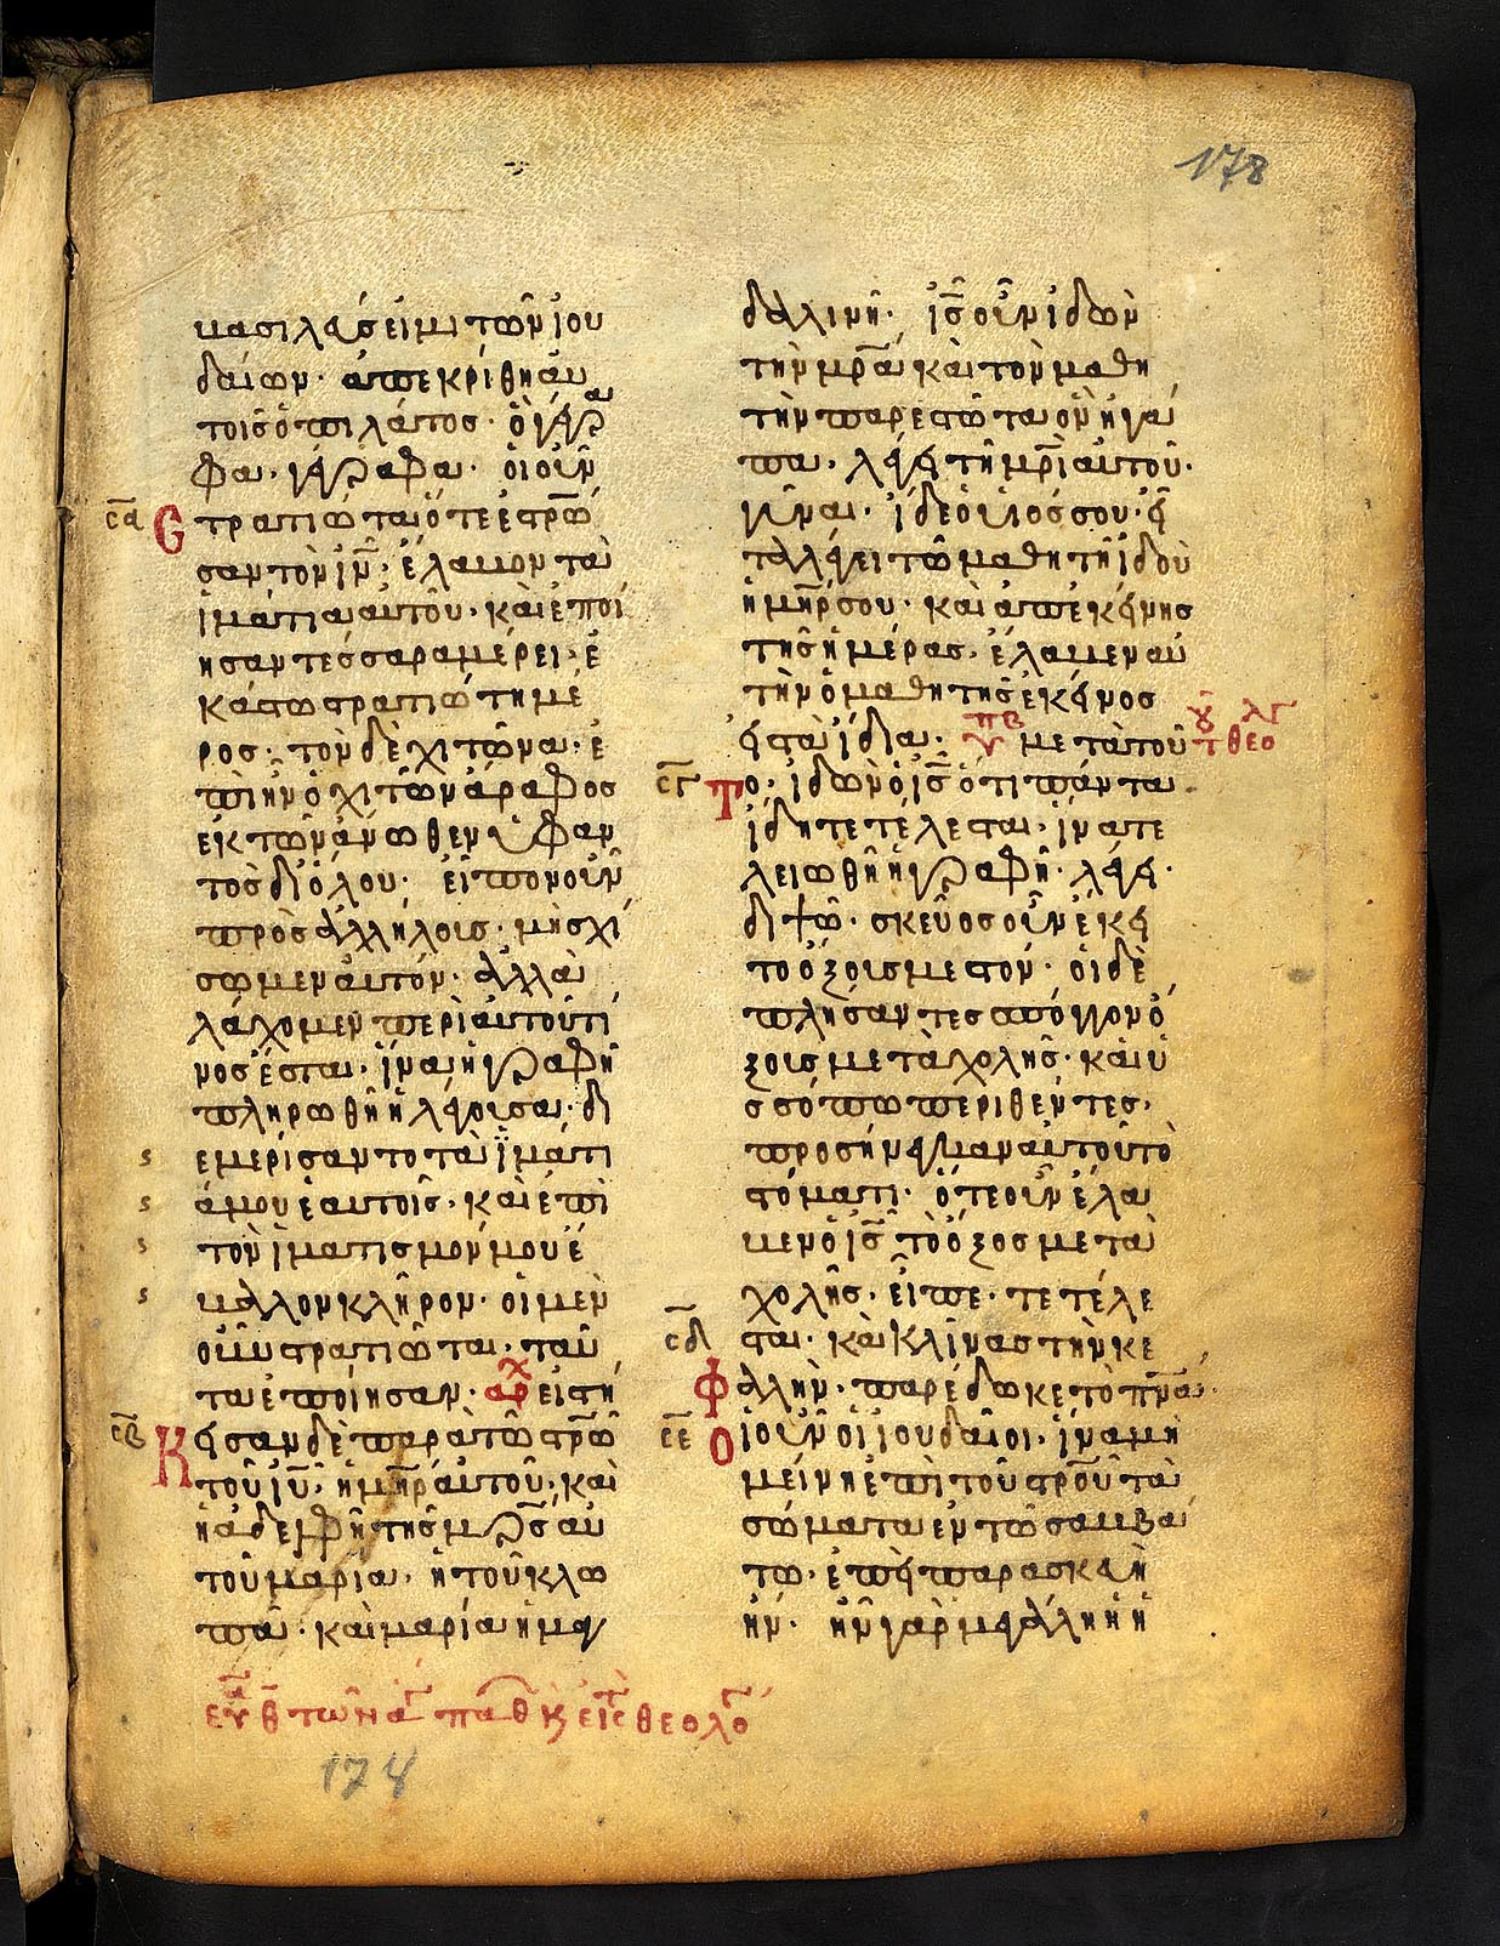 178
βασιλεύς εἰμι τῶν ἰου
δαίων· ἀπεκρίθη αὐ
τοῖς ὁ πιλάτος· ὃ γέγρα
φα, γέγραφα· οἱ οὖν
σα Στρατιῶται ὅτε ἐστρω
σαν τὸν ιν· ἔλαβον τὰ
ἱμάτια αὐτοῦ· καὶ ἐποί
ησαν τέσσαρα μέρει· ἑ
κάστω στρατιώτη μέ
ρος· τὸν δὲ χιτῶνα· ἐ
πὶ ἦν ὁ χιτῶν ἄραφος
ἐκ τῶν ἄνωθεν ὑφαν
τὸς δι' ὅλου· εἶπον οὖν
πρὸς ἀλλήλους· μὴ σχί
σωμεν αὐτόν· ἀλλὰ
λάχομεν περὶ αὐτοῦ τί
νος ἔσται· ἵνα ἡ γραφὴ
πληρωθῆ ἡ λέγουσα· δι
εμερίσαντο τὰ ἱμάτι
ά μου ἑαυτοῖς· καὶ ἐπὶ
τὸν ἱματισμόν μου ἔ
βαλλον κλῆρον· οἱ μὲν
οὖν στρατιῶται· ταῦ
τα ἐποίησαν· αρχ εἱστή
σβ Κεισαν δὲ παρὰ τῶ στρω
τοῦ ιυ· ἡ μηρ αὐτοῦ· καὶ
ἡ ἀδελφὴ τῆς μρς αὐ
τοῦ μαρία· ἡ τοῦ κλω
πᾶ· καὶ μαρία ἡ μαγ
δαλινή· ις οὖν ἰδὼν
τὴν μρα καὶ τὸν μαθη
τὴν παρεστῶτα ὃν ἠγά
πα, λέγει τῆ μρι αὐτοῦ·
γύναι· ἴδε ὁ υἱός σου· εἶ
τα λέγει τῶ μαθητῆ ἰδοὺ
ἡ μηρ σου· καὶ ἀπ' ἐκείνης
τῆς ἡμέρας· ἔλαβεν αὐ
τὴν ὁ μαθητὴς ἐκεῖνος
εἰς τὰ ἴδια· μετὰ τοῦ
σγ Το· ἰδὼν ὁ ις ὅτι πάντα
ἤδη τετέλεσται· ἵνα τε
λειωθῆ ἡ γραφή· λέγει·
διψῶ· σκεῦος οὖν ἔκει
το ὄξους μεστόν· οἱ δὲ
πλήσαντες σπόγγον ὄ
ξους μετὰ χολῆς· καὶ ὑ
σσόπω περιθέντες·
προσήνεγκαν αὐτοῦ τὸ
στόματι· ὅτε οὖν ἔλα
βεν ὁ ις τὸ ὄξος μετὰ
χολῆς· εἶπε· τετέλε
σδ σται· καὶ κλίνας τὴν κε
φαλὴν· παρέδωκε τὸ πνα·
σε Οἱ οὖν οἱ ἰουδαῖοι· ἵνα μὴ
μείνη ἐπὶ τοῦ στρου τὰ
σώματα ἐν τῶ σαββά
τω· ἐπεὶ παρασκευὴ
ἦν· ἦν γὰρ μεγάλη ἡ ἡ
174